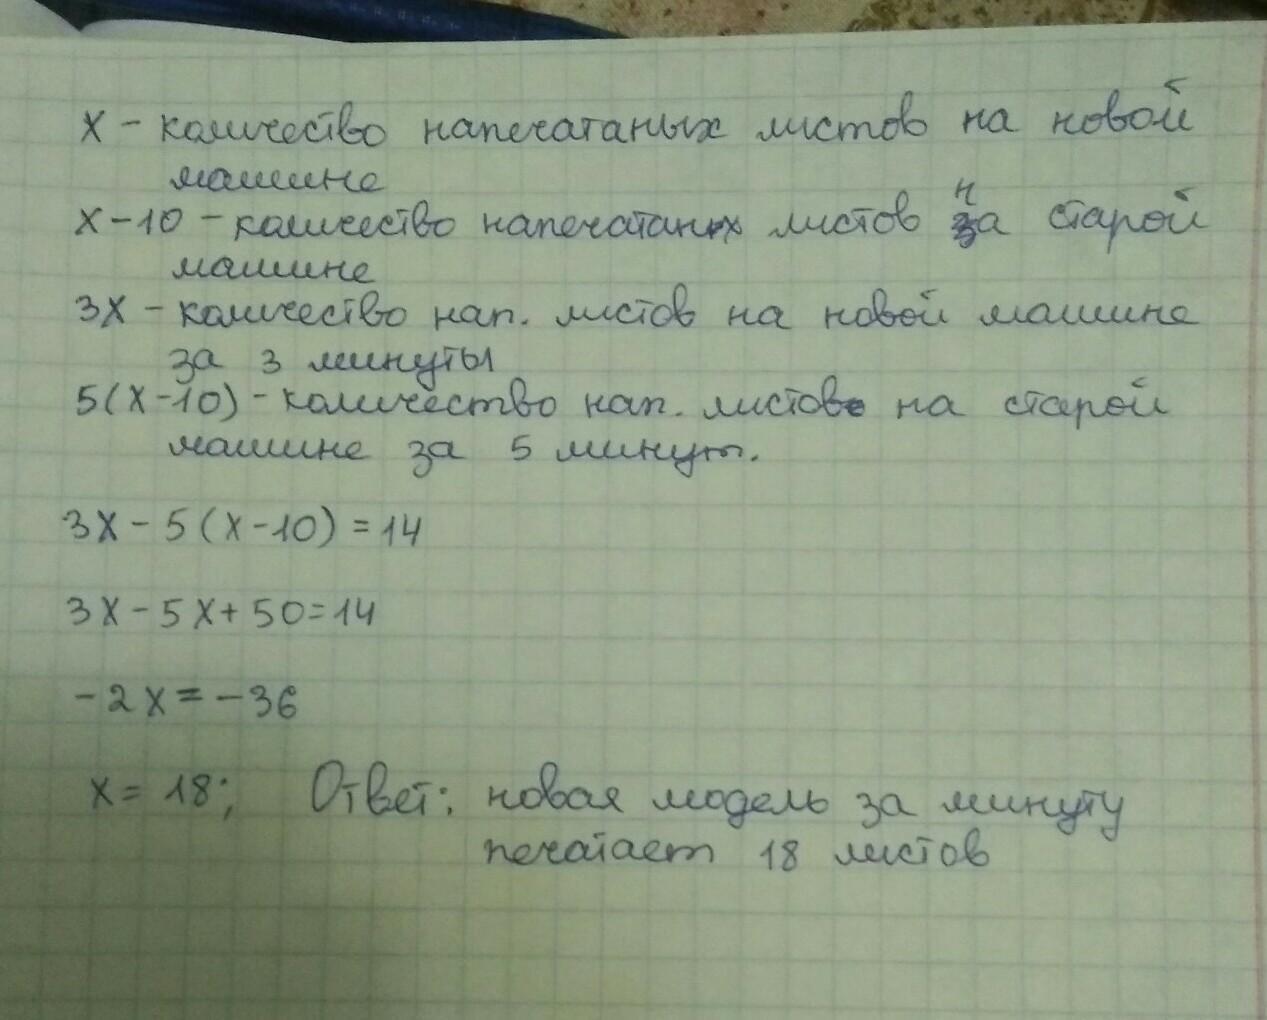 х - количество напечатаных листов на новой
машине
х-10 - количество напечатаных листов на старой
машине
3х - количество нап. листов на новой машине
за 3 минуты
5(х-10) - количество нап. листов на старой
машине за 5 минут.
3х - 5(х-10) = 14
3х - 5х + 50 = 14
-2х = -36
х = 18; Ответ: новая модель за минуту
печатает 18 листов